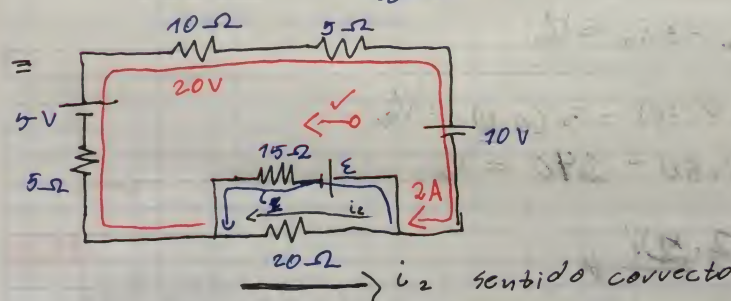 10 Ω 5 Ω
=
20V
5V
10V
15Ω ε
5Ω
2A
i₂
20 Ω
i₂ sentido correcto